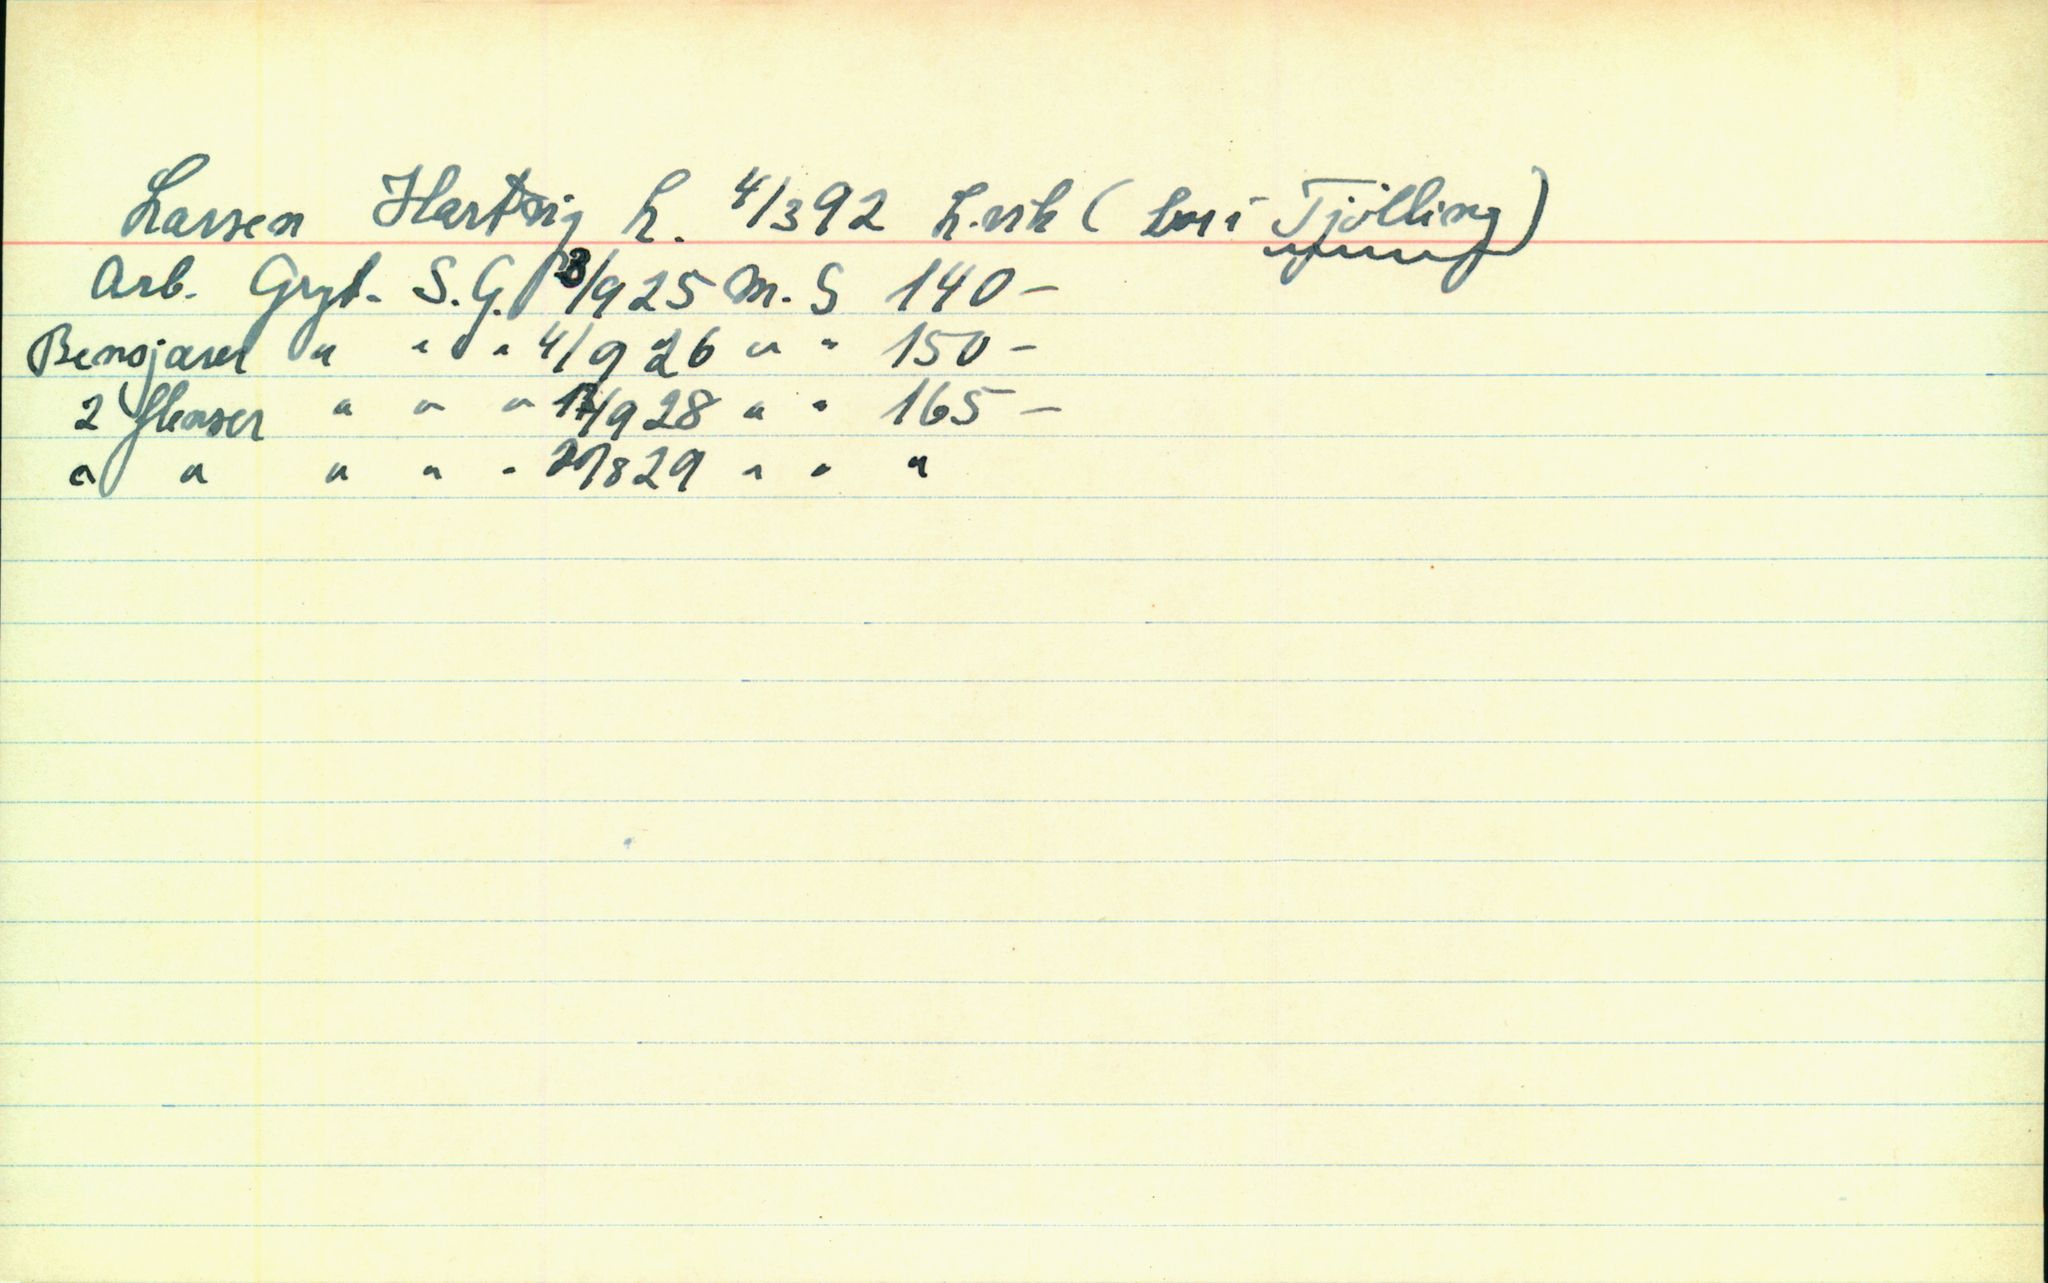 Larsen Hartvig L. 4/3 92 L.vik (bor i Tjölling)
Arb. Gryt. S.G. 3/9 25 M.S 140 -
Bensjaver " " " 4/9 26 " " 150 -
2 flenser " " " 17/9 28 " " 165 -
" " " " " 29 " " "